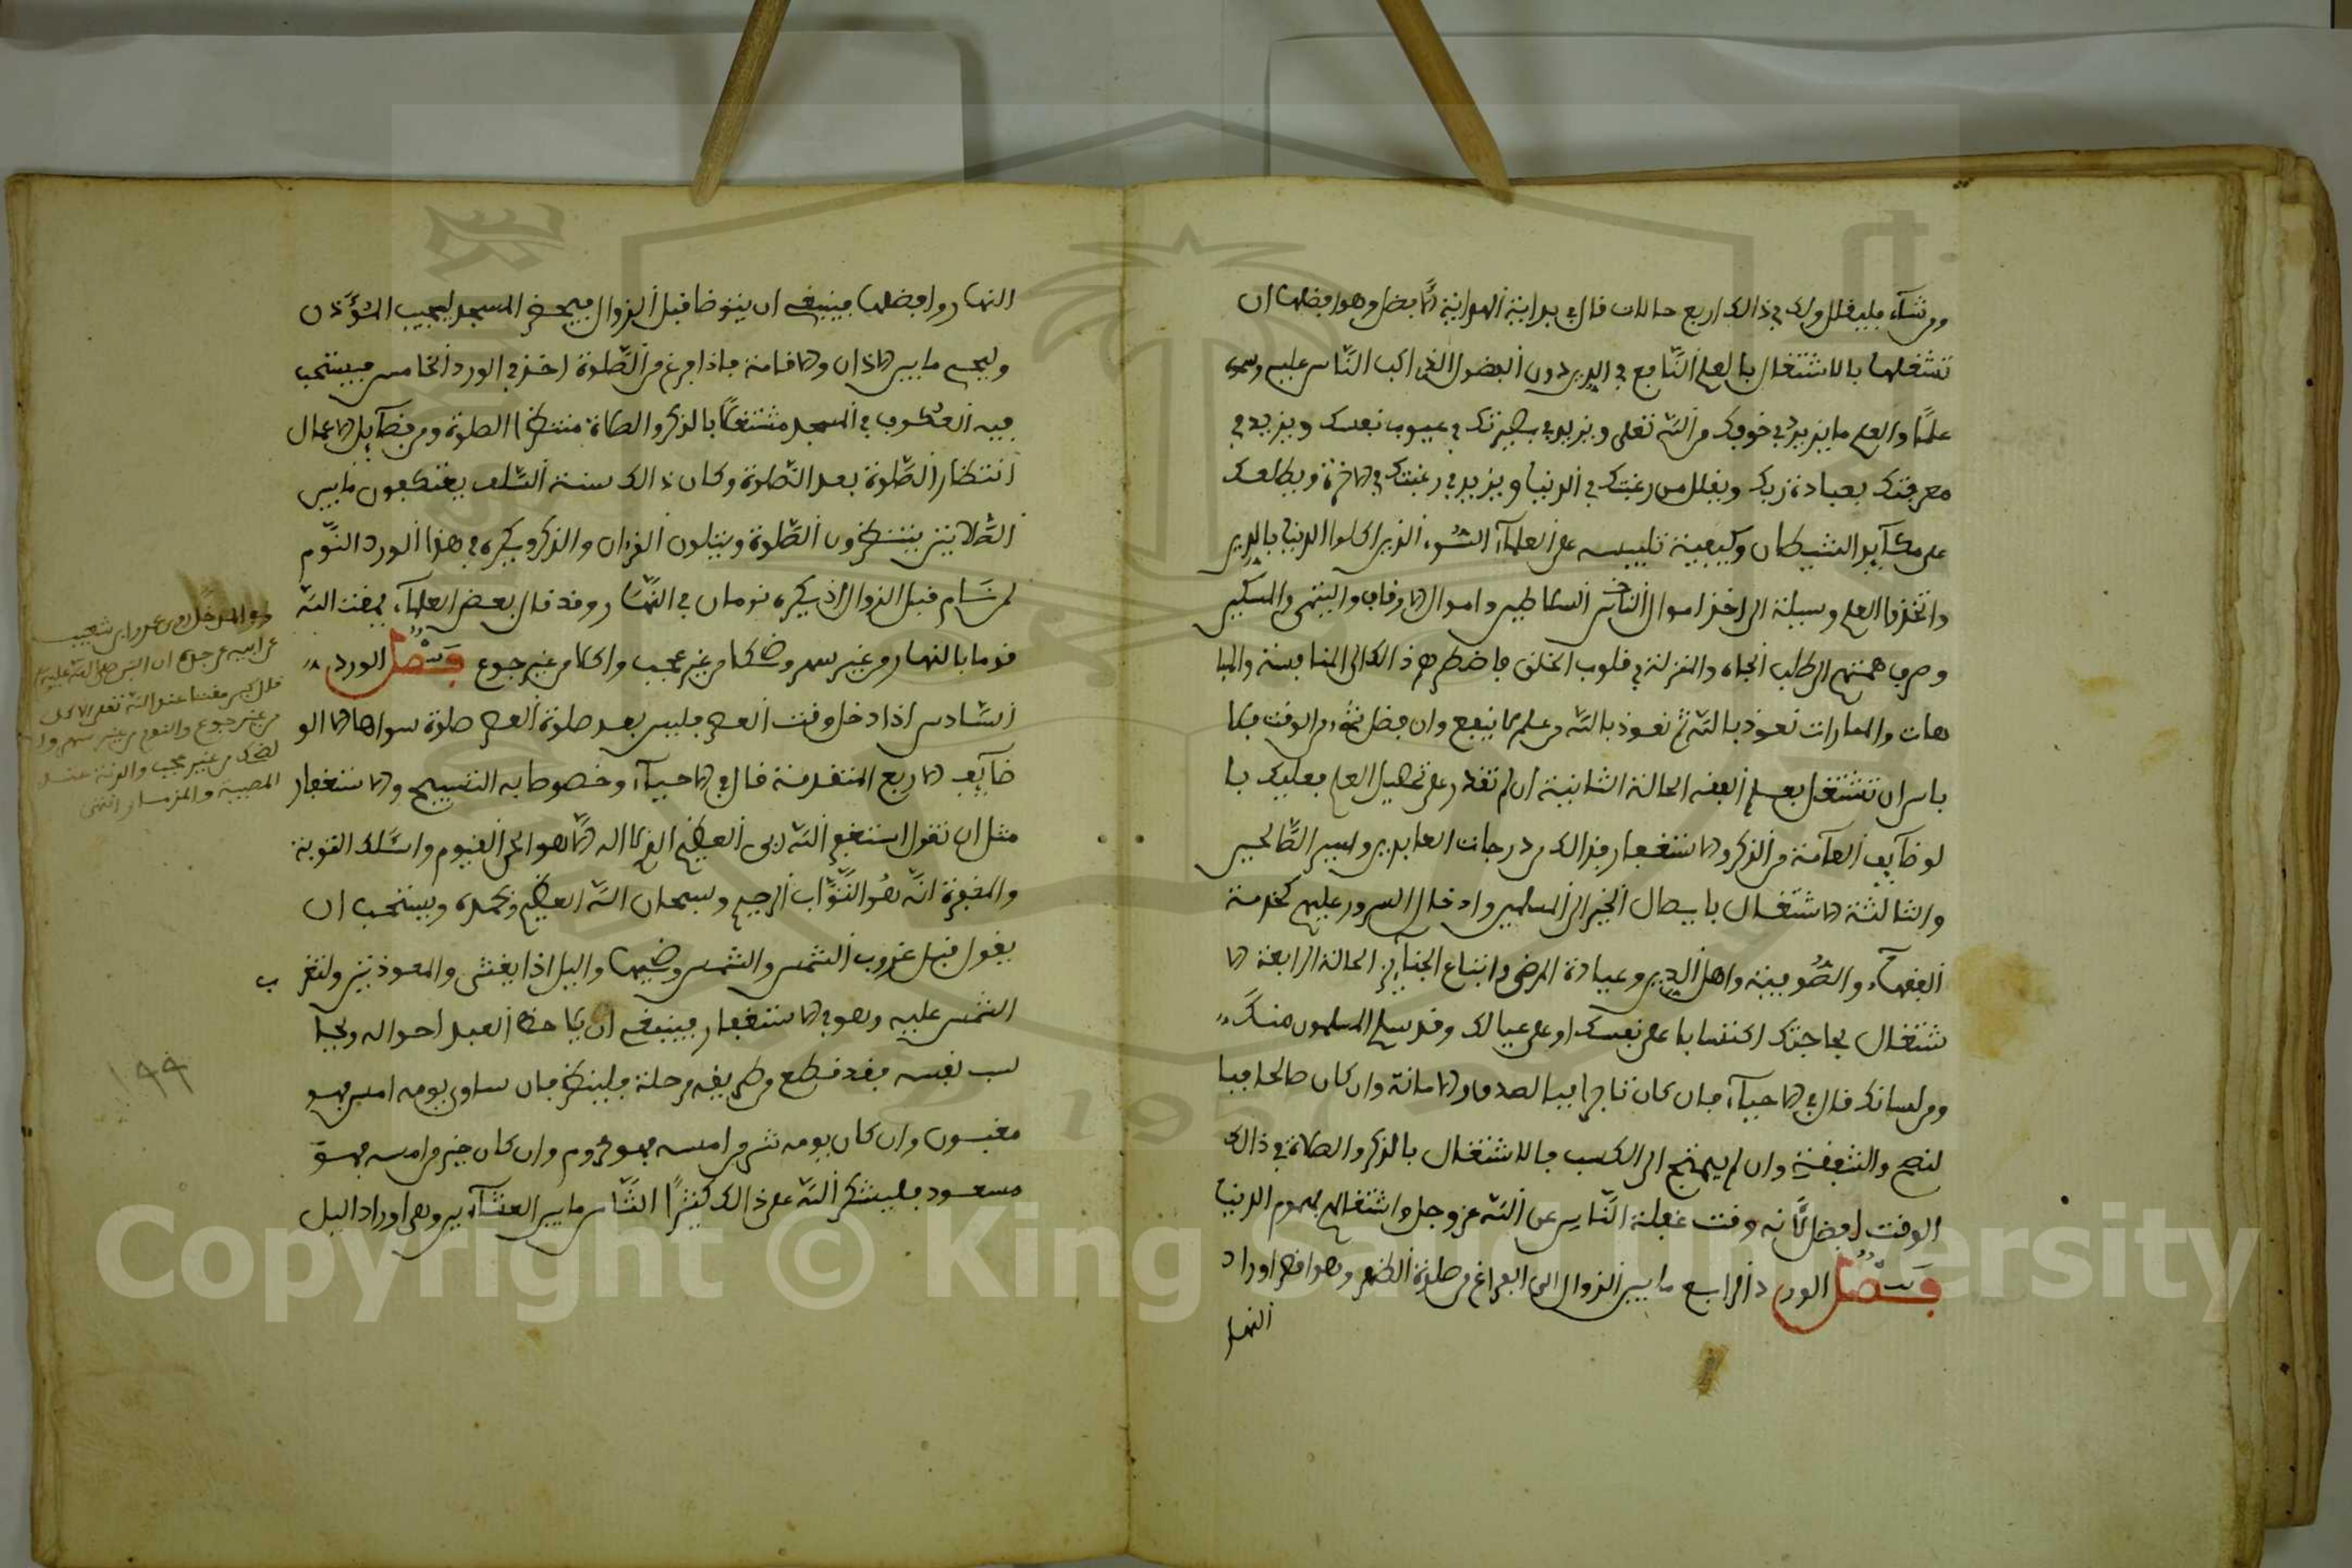 ومن شآء فليقلل ولك في ذالك اربع حالات قال في بداية الهداية الأفضل وهو افضلها ان
تشغلها بالاشتغال بالعلم النّافع في الدين دون الفضول الذي اكب النّاس عليه وسموه
علمًا والعلم ما يزيد في خوفك من الله تعلى ويزيد في بصيرتك في عيوب نفسك ويزيد في
معرفتك بعبادة ربك ويقلل من رغبتك في الدنيا ويزيد في رغبتك في الاخرة ويطلعك
على مكآيد الشيطان وكيفية تلبيسه على العلمآء السّوء الذين اكلوا الدنيا بالدين
واتخذوا العلم وسيلة الى اخذ اموال النّاس السلاطين واموال الاوقاف واليتمى والمسكين
وصرف همتهم الى طلب الجاه والمنزلة في قلوب الخلق فاضطرهم ذالك الى المنافسة والمبا
هات والممارات نعوذ بالله ثم نعوذ بالله من علم لا ينفع وان فضل شيء من الوقت فلا
باس ان تشتغل بعلم الفقه الحالة الثانية ان لم تقدر على تحصيل العلم فعليك با
لوظآيف العآمة من الذكر والاستغفار فذالك من درجات العابدين وسير الصّالحين
والثالثة الاشتغال بايصال الخير الى المسلمين وادخال السرور عليهم كخدمة
الفقهآء والصّوفية واهل الدين وعيادة المرضى واتباع الجنآيز الحالة الرابعة الا
شتغال بحاجتك اكتسابا على نفسك او على عيالك وقد سلم المسلمون منك
ومن لسانك قال في الاحيآء فان كان تاجرا فبالصدق والامانة وان كان صالحا فبا
لنصح والشفقة وان لم يحتج الى الكسب فالاشتغال بالذكر والصلاة في ذالك
الوقت افضل لّأنه وقت غفلة النّاس عن الله عز وجل واشتغالهم بهموم الدنيا
فصل الورد الرابع ما بين الزوال الى الفراغ من صلوة الظهر وهو اقصر اوراد
النهار
النهار وافضلها فينبغي ان يتوضا قبل الزوال فيحضر المسجد ليجيب المؤذن
وليحي ما بين الاذان والاقامة فاذا فرغ من الصّلوة اخذ في الورد الخامس فيستحب
فيه العكوف في المسجد مشتغلًا بالذكر والصلاة منتظرا الصلوة ومن فضآيل الاعمال
انتظار الصّلوة بعد الصّلوة وكان ذالك سنة السّلف يعتكفون ما بين
الصّلاتين ينتظرون الصّلوة ويتلون القرءان والذكر ويكره في هذا الورد النّوم
لمن نام قبل الزوال اذ يكره نومان في النهّار وقد قال بعض العلمآء يمقت الله
نوما بالنهار من غير سهر وضحكا من غير عجب واكلا من غير جوع فصل الورد
السّادس اذا دخل وقت العصر فليس بعد صلوة العصر صلوة سواها الا الو
ظآيف الاربع المتقدمة قال في الاحيآء وخصوصا به التسبيح والاستغفار
مثل ان تقول استغفر الله ربي العظيم الذي لا اله الّا هو الحي القيوم واسّلك التوبة
والمغفرة انّه هو التّوّاب الرحيم وسبحان الله العظيم وبحمده ويستحب ان
يقول قبل غروب الشمس والشمس وضحيها واليل اذا يغشى والمعوذتين ولتغر ب
الشمس عليه وهو في الاستغفار فينبغي ان يلاحظ العبد احواله ويحا
سب نفسه فقد قطع من طريقه مرحلة فلينظر فان ساوى يومه امسه فهو
مغبون وان كان يومه شر من امسه فهو محروم وان كان خير من امسه فهو
مسعود فليشكر الله على ذالك كثيرًا الثّاس ما بين العشآءين وهي اوراد اليل
عن ابيه عن جده ان النبي صلى الله عليه وسلم
قال كبر مقتا عند الله تعلى الاكل
من غير جوع والنوم من غير سهر وا
لضحك من غير عجب والرنة عند
المصيبة والمزمار انتهى
١٩٩
Copyright © King Saud University
1957